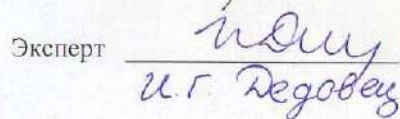 Эксперт
И.Г. Дедовец